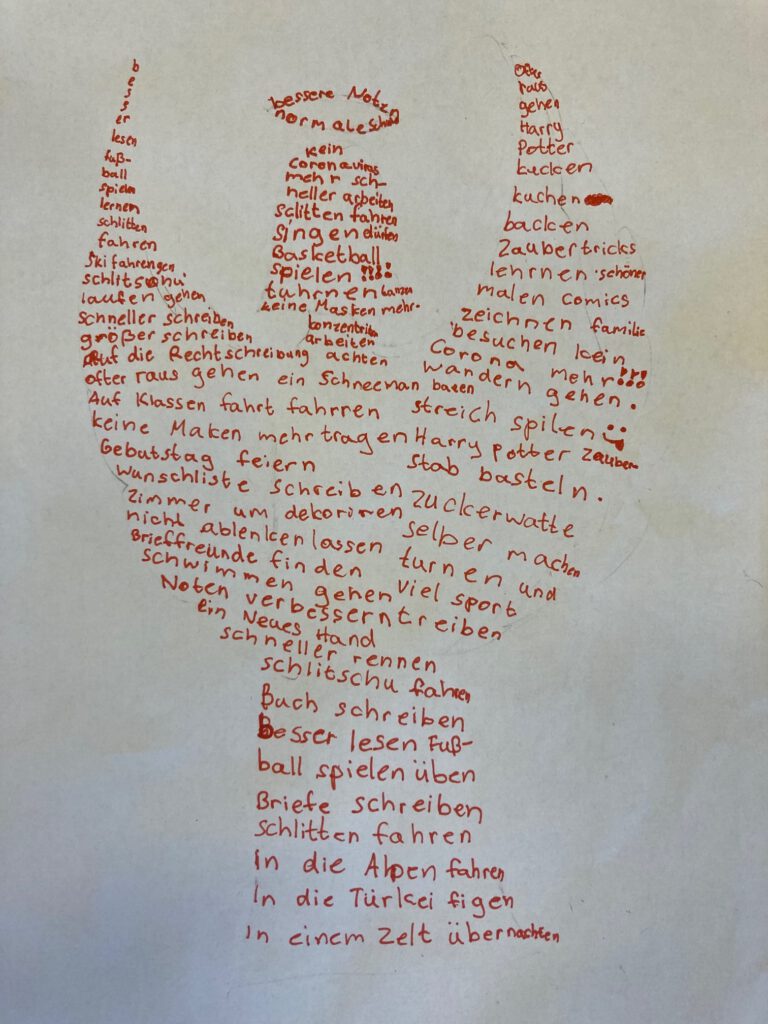 bessere Noten
normale Schule
b
e
s
s
er
lesen
fuß-
ball
spieln
lernen
schlitten
fahren
Ski fahrengen
schlitschu
laufen gehen
schneller schreiben
größer schreiben
Auf die Rechtschreibung achten
ofter raus gehen ein Schneeman bauen
Auf Klassen fahrt fahrren
keine Maken mehr tragen
Gebutstag feiern
wunschliste schreiben
Zimmer um dekoriren
nicht ablenken lassen
Brieffreunde finden
schwimmen gehen
Noten verbessern
kein
Coronavirus
mehr sch-
neller arbeiten
sclitten fahren
singen dürfen
Basketball
spielen !!!!
tuhrnen tanzen
keine Masken mehr.
konzentrirn
arbeiten
Ofter
raus
gehen
Harry
Potter
kucken
kuchen
backen
Zaubertricks
lehrnen schöner
malen comics
zeichnen familie
besuchen kein
Corona mehr!!!
wandern gehen.
streich spilen
Harry Potter Zauber-
stab basteln.
Zuckerwatte
selber machen
turnen und
viel sport
treiben
ein Neues Hand
schneller rennen
schlitschu fahren
Buch schreiben
Besser lesen Fuß-
ball spielen üben
Briefe schreiben
schlitten fahren
In die Alpen fahren
In die Türkei figen
In einem Zelt übernachten